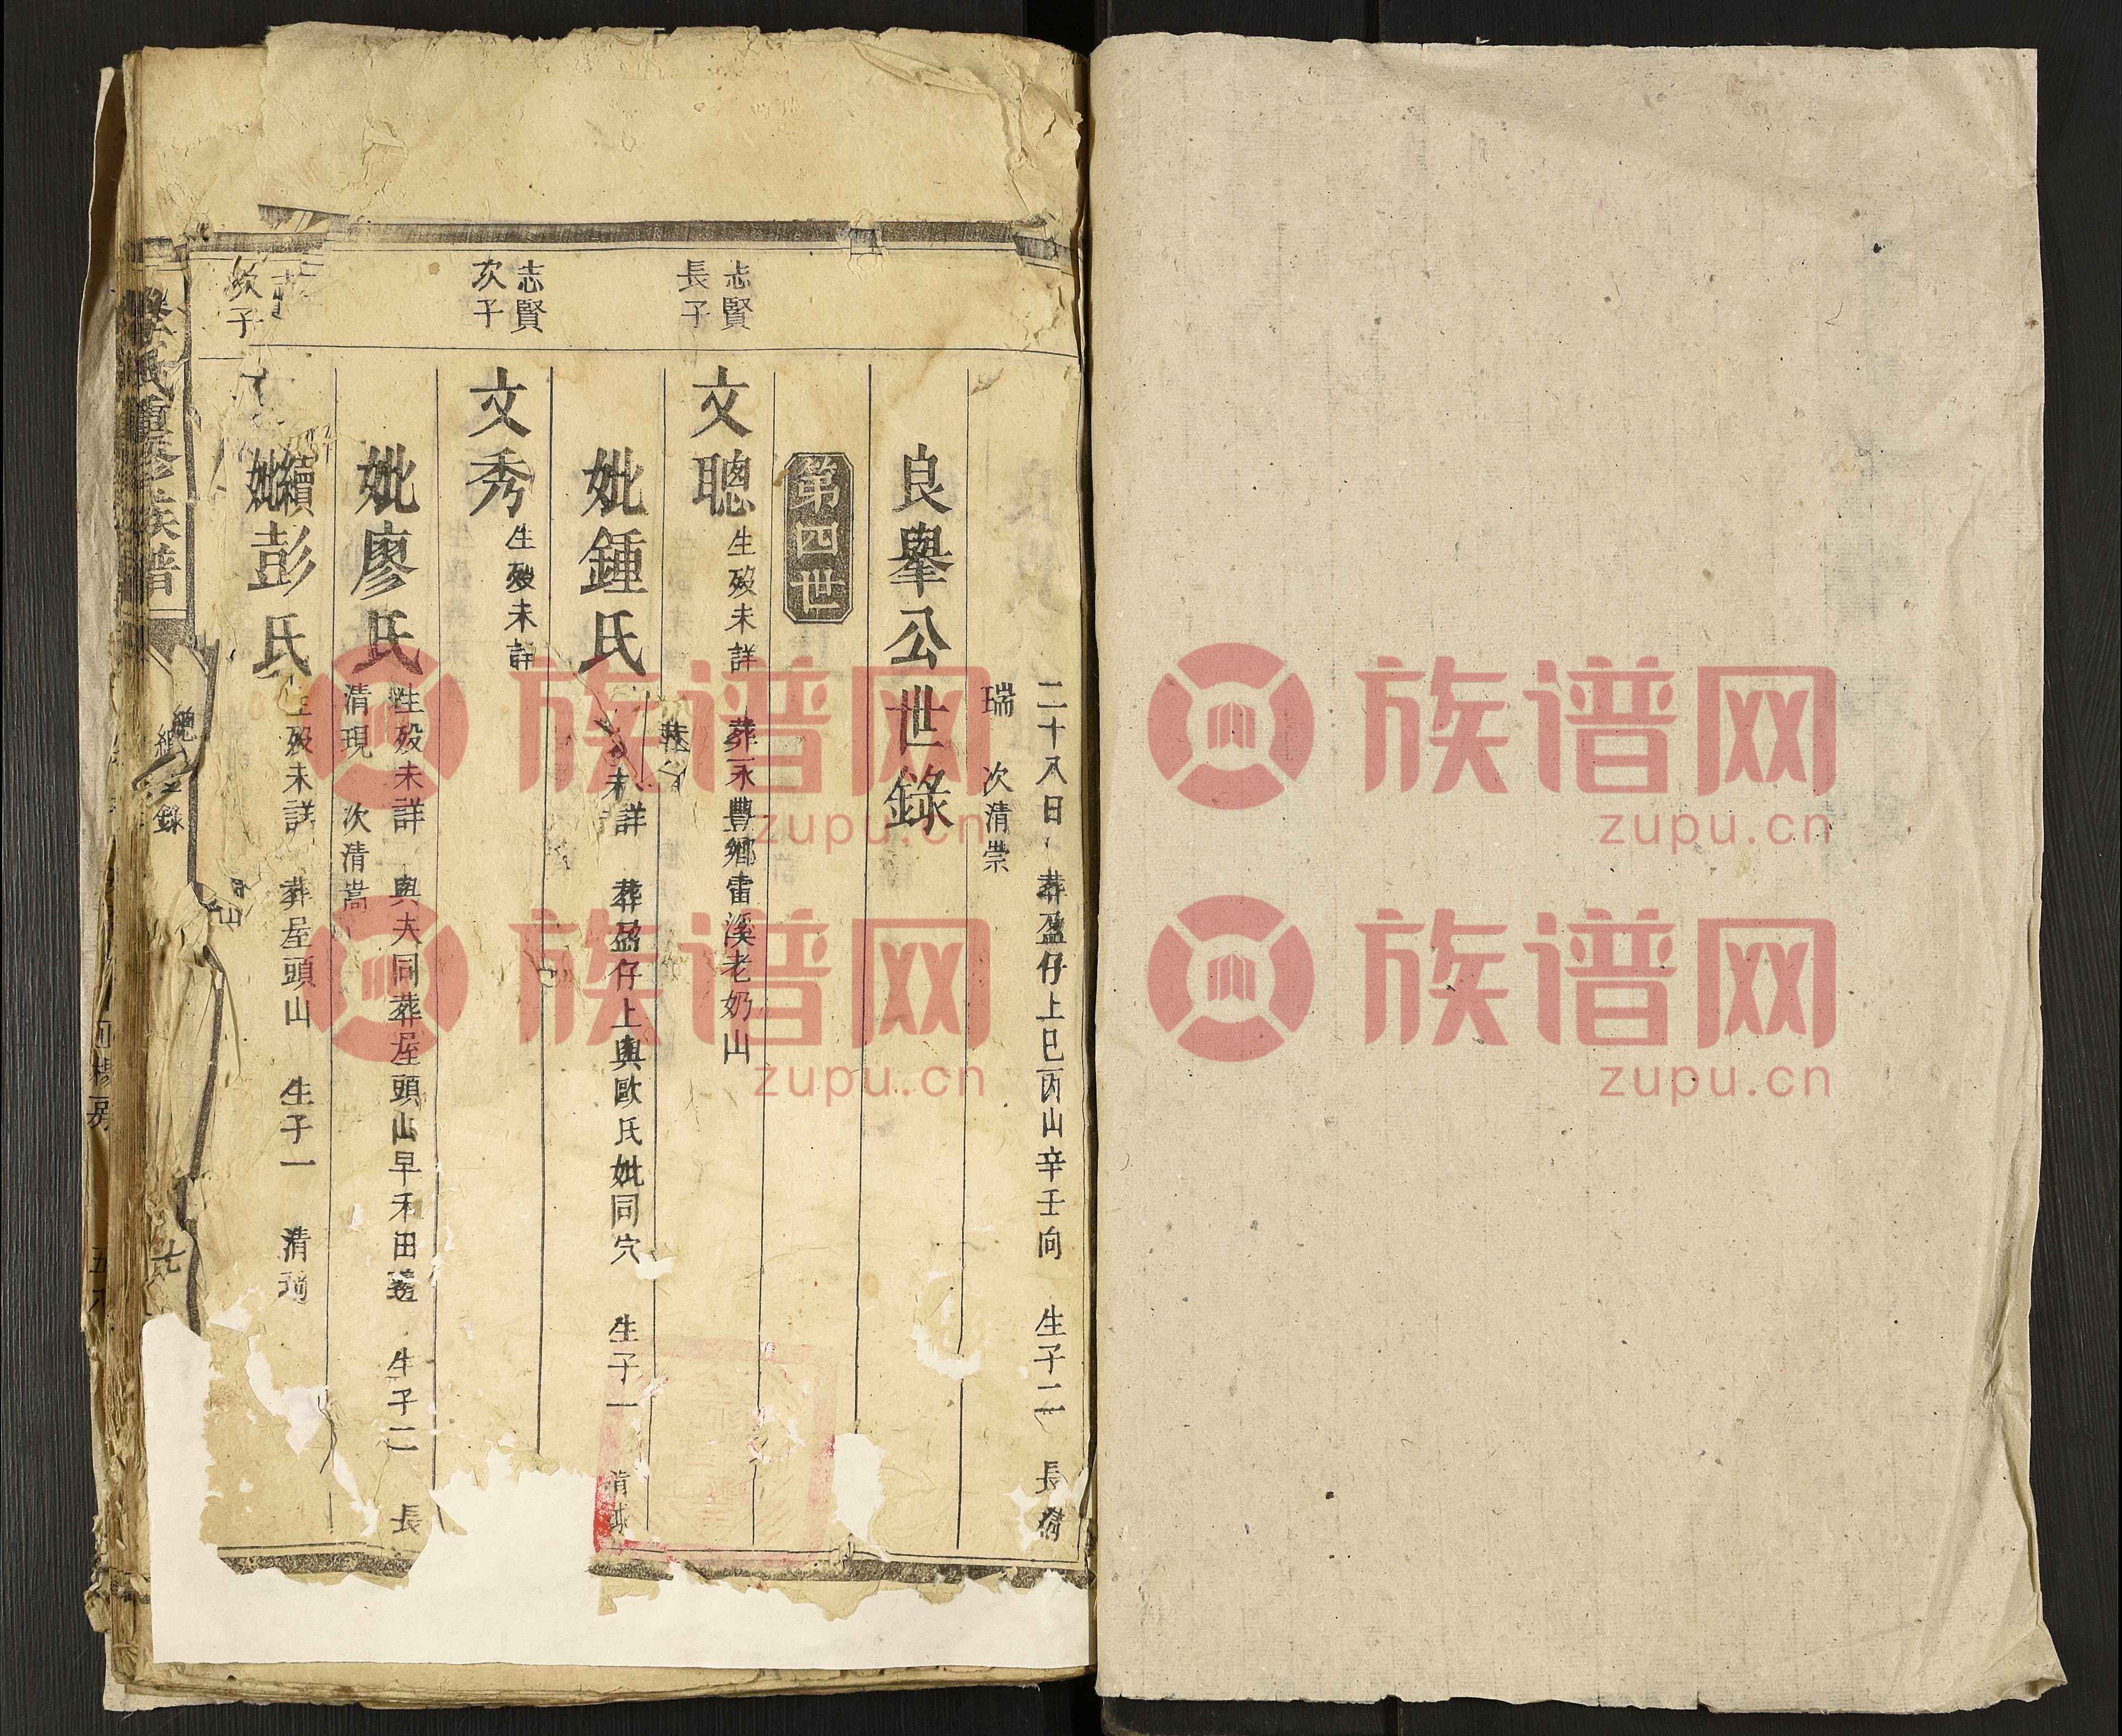 二十八日 葬盈仔上巳丙山辛壬向 生子二 長清
瑞 次清崇
良舉公世錄
第四世
志賢
長子
文聰
生歿未詳 葬永豐鄉雷溪老奶山
妣鍾氏
未詳 葬盈仔上與歐氏妣同穴 生子一
志賢
次子
文秀
生歿未詳
妣廖氏
生歿未詳 與夫同葬屋頭山早禾田邊 生子二 長
清現 次清嵩
次子
續
妣
彭氏
生歿未詳 葬屋頭山 生子一 清
氏重修族譜
總
錄
七
房
五
族谱网
zupu.cn
族谱网
zupu.cn
族谱网
zupu.cn
族谱网
zupu.cn